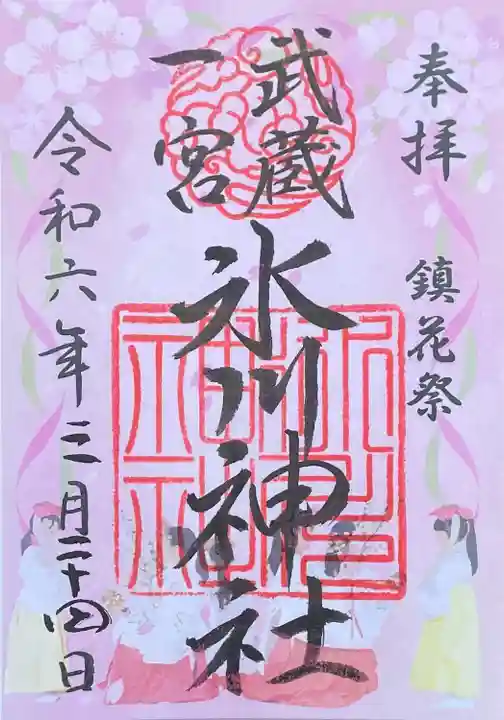 奉拝 鎮花祭
武蔵
一宮
氷川神社
令和六年三月二十四日